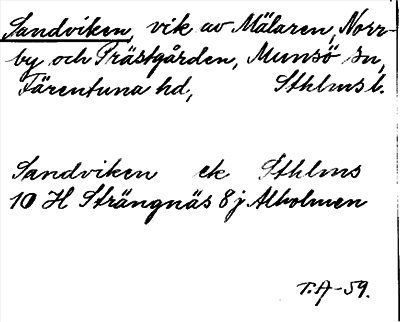 Sandviken, vik av Mälaren, Norr-
by och Prästgården, Munsö sn,
Färentuna hd, Sthlms l.
Sandviken ek Sthlms
10 H Strängnäs 8 j Alholmen
T.A-59.